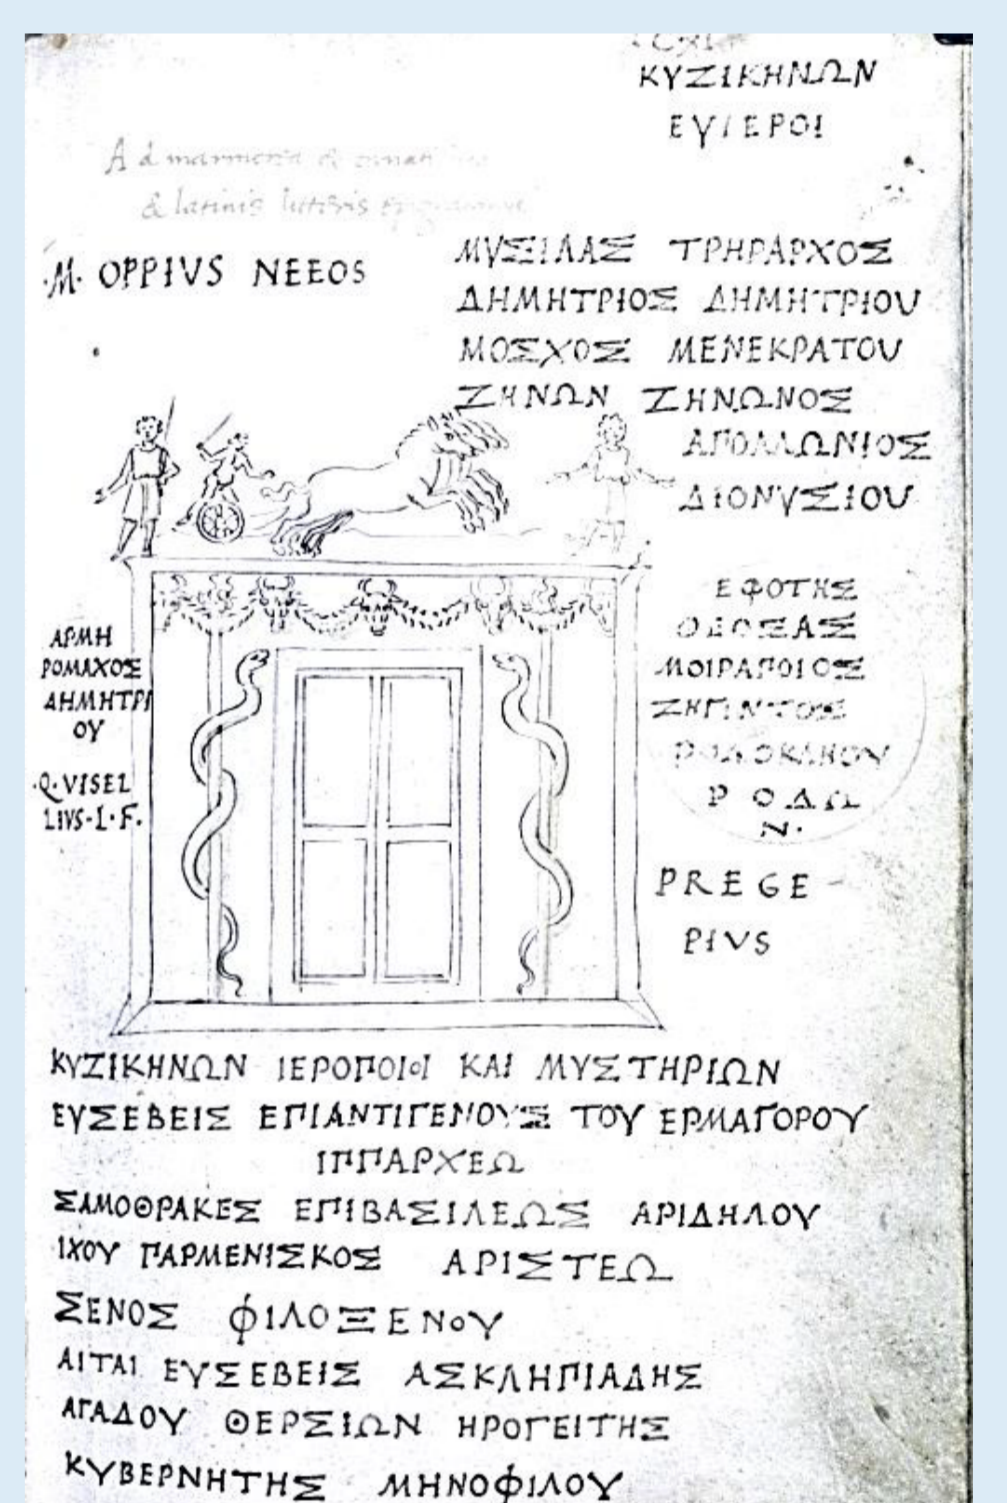 ΚΥΖΙΚΗΝΩΝ
ΕΥΙΕΡΟΙ
Ad marmorea
& latinis litteris
·M· OPPIVS NEEOS
ΜΥΣΙΛΑΣ ΤΡΗΡΑΡΧΟΣ
ΔΗΜΗΤΡΙΟΣ ΔΗΜΗΤΡΙΟΥ
ΜΟΣΧΟΣ ΜΕΝΕΚΡΑΤΟΥ
ΖΗΝΩΝ ΖΗΝΩΝΟΣ
ΑΠΟΛΛΩΝΙΟΣ
ΔΙΟΝΥΣΙΟΥ
ΑΡΜΗ
ΡΟΜΑΧΟΣ
ΔΗΜΗΤΡΙ
ΟΥ
·Q·VISEL
LIVS·L·F·
ΕΦΟΤΗΣ
ΜΟΙΡΑΠΟΙΟΣ
ΡΟΔΟΚΛΗΟΥ
ΡΟΔΩ
Ν·
PREGE
PIVS
ΚΥΖΙΚΗΝΩΝ ΙΕΡΟΠΟΙΟΙ ΚΑΙ ΜΥΣΤΗΡΙΩΝ
ΕΥΣΕΒΕΙΣ ΕΠΙΑΝΤΙΓΕΝΟΥΣ ΤΟΥ ΕΡΜΑΓΟΡΟΥ
ΙΠΠΑΡΧΕΩ
ΣΑΜΟΘΡΑΚΕΣ ΕΠΙΒΑΣΙΛΕΩΣ ΑΡΙΔΗΛΟΥ
ΙΧΟΥ ΠΑΡΜΕΝΙΣΚΟΣ ΑΡΙΣΤΕΩ
ΞΕΝΟΣ ΦΙΛΟΞΕΝΟΥ
ΑΙΤΑΙ ΕΥΣΕΒΕΙΣ ΑΣΚΛΗΠΙΑΔΗΣ
ΑΓΑΔΟΥ ΘΕΡΣΙΩΝ ΗΡΟΓΕΙΤΗΣ
ΚΥΒΕΡΝΗΤΗΣ ΜΗΝΟΦΙΛΟΥ